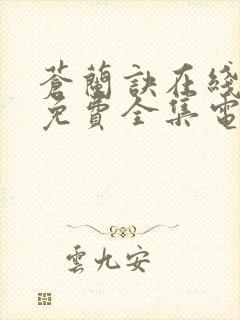 蒼蘭訣在綫
免費全集電
雲九安